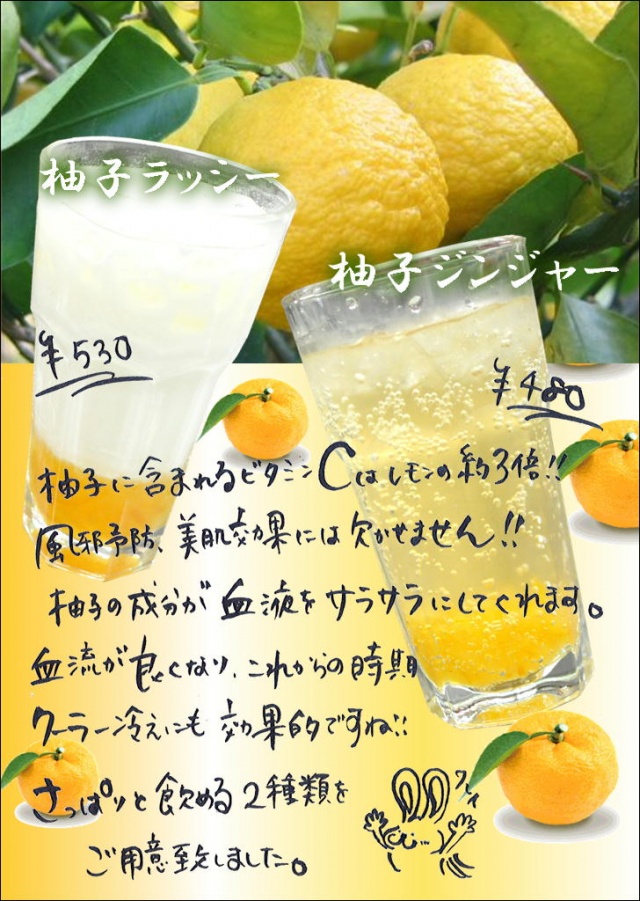 柚子ラッシー
柚子ジンジャー
¥530
¥480
柚子に含まれるビタミンCはレモンの約3倍!!
風邪予防、美肌効果には欠かせません!!
柚子の成分が血液をサラサラにしてくれます。
血流が良くなり、これからの時期
クーラー冷えにも効果的ですね!!
さっぱりと飲める2種類を
ご用意致しました。